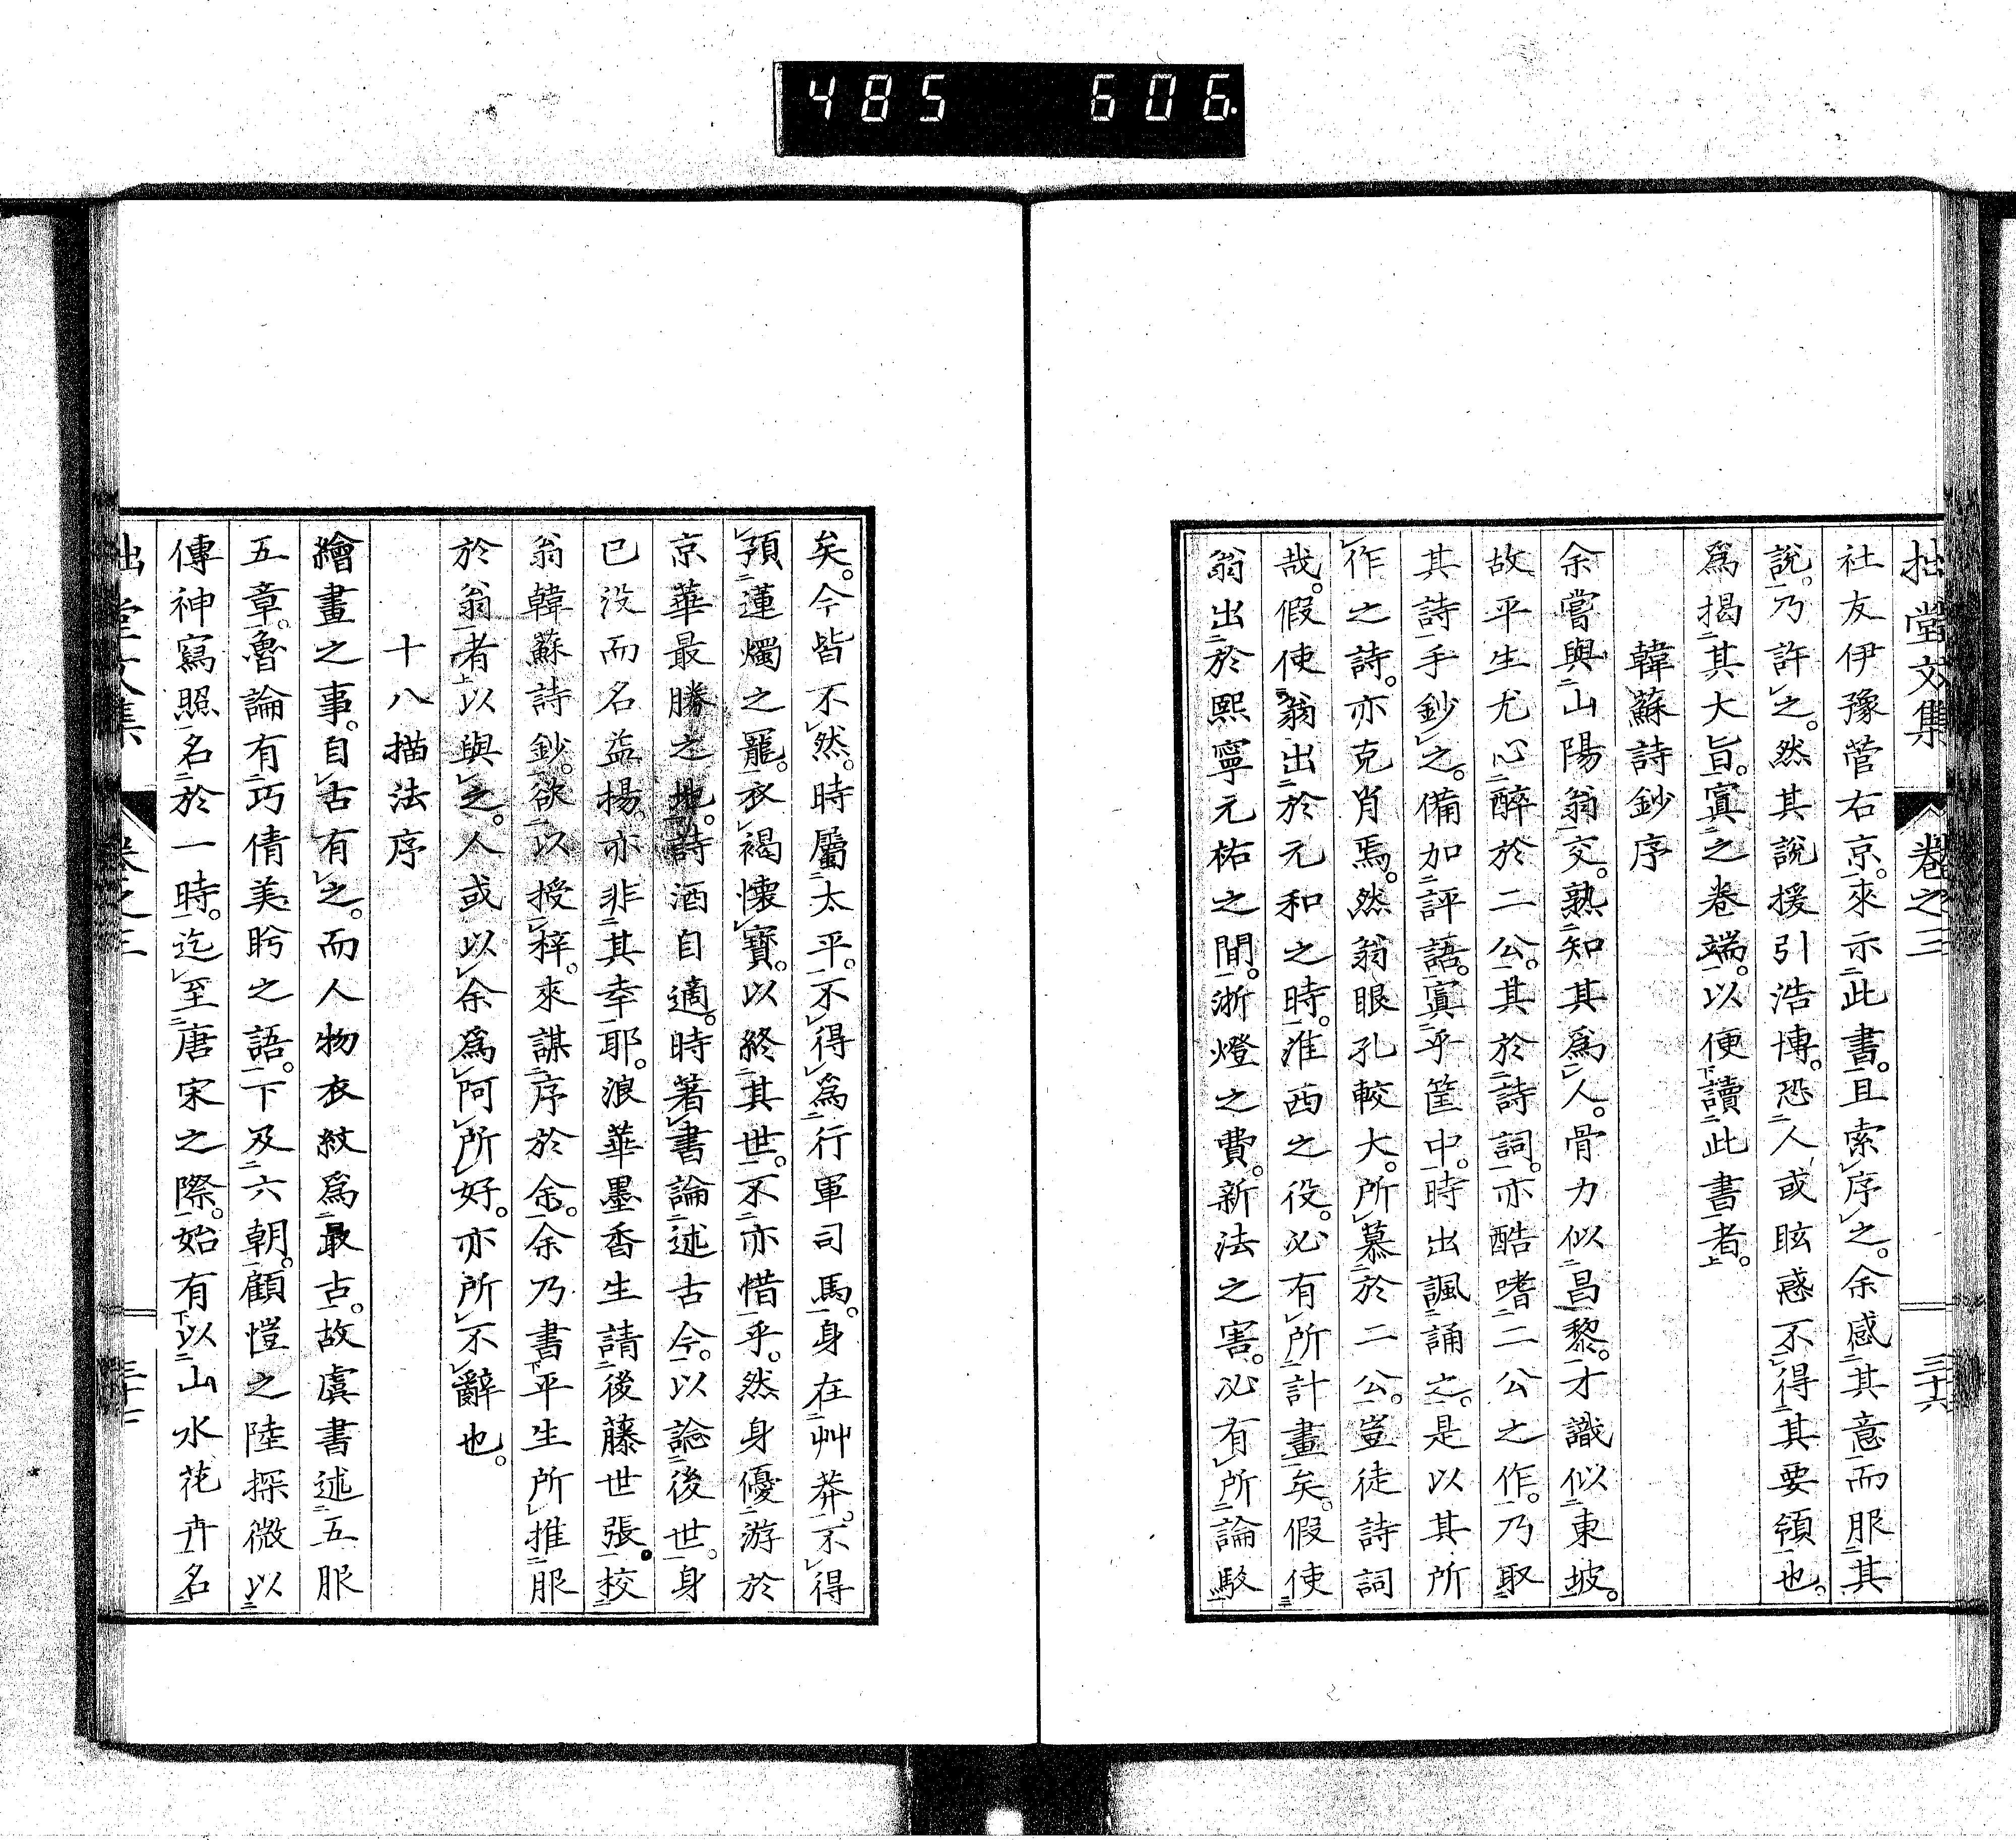 485 606.
拙堂文集 卷之三 三十六
社友伊豫菅右京。來示此書。且索序之。余感其意而服其
説。乃許之。然其説援引浩博。恐人或眩惑不得其要領也。
爲揭其大旨。寘之卷端。以便讀此書者。
韓蘇詩鈔序
余嘗與山陽翁交。熟知其爲人。骨力似昌黎。才識似東坡。
故平生尤心醉於二公。其於詩詞。亦酷嗜二公之作。乃取
其詩手鈔之。備加評語。寘乎筐中。時出諷誦之。是以其所
作之詩。亦克肖焉。然翁眼孔較大。所慕於二公。豈徒詩詞
哉。假使翁出於元和之時。淮西之役。必有所計畫矣。假使
翁出於熙寧元祐之間。浙燈之費。新法之害。必有所論駁
矣。今皆不然。時屬太平。不得爲行軍司馬。身在艸莽。不得
預蓮燭之寵。衣褐懷寶。以終其世。不亦惜乎。然身優游於
京華最勝之地。詩酒自適。時著書論述古今。以諗後世。身
已没而名益揚。亦非其幸耶。浪華墨香生請後藤世張。校
翁韓蘇詩鈔。欲以授梓。來謀序於余。余乃書平生所推服
於翁者以與之。人或以余爲阿所好。亦所不辭也。
十八描法序
繪畫之事。自古有之。而人物衣紋爲最古。故虞書述五服
五章。魯論有巧倩美盼之語。下及六朝。顧愷之陸探微以
傳神寫照名於一時。迄至唐宋之際。始有以山水花卉名
拙堂文集 卷之三 三十七